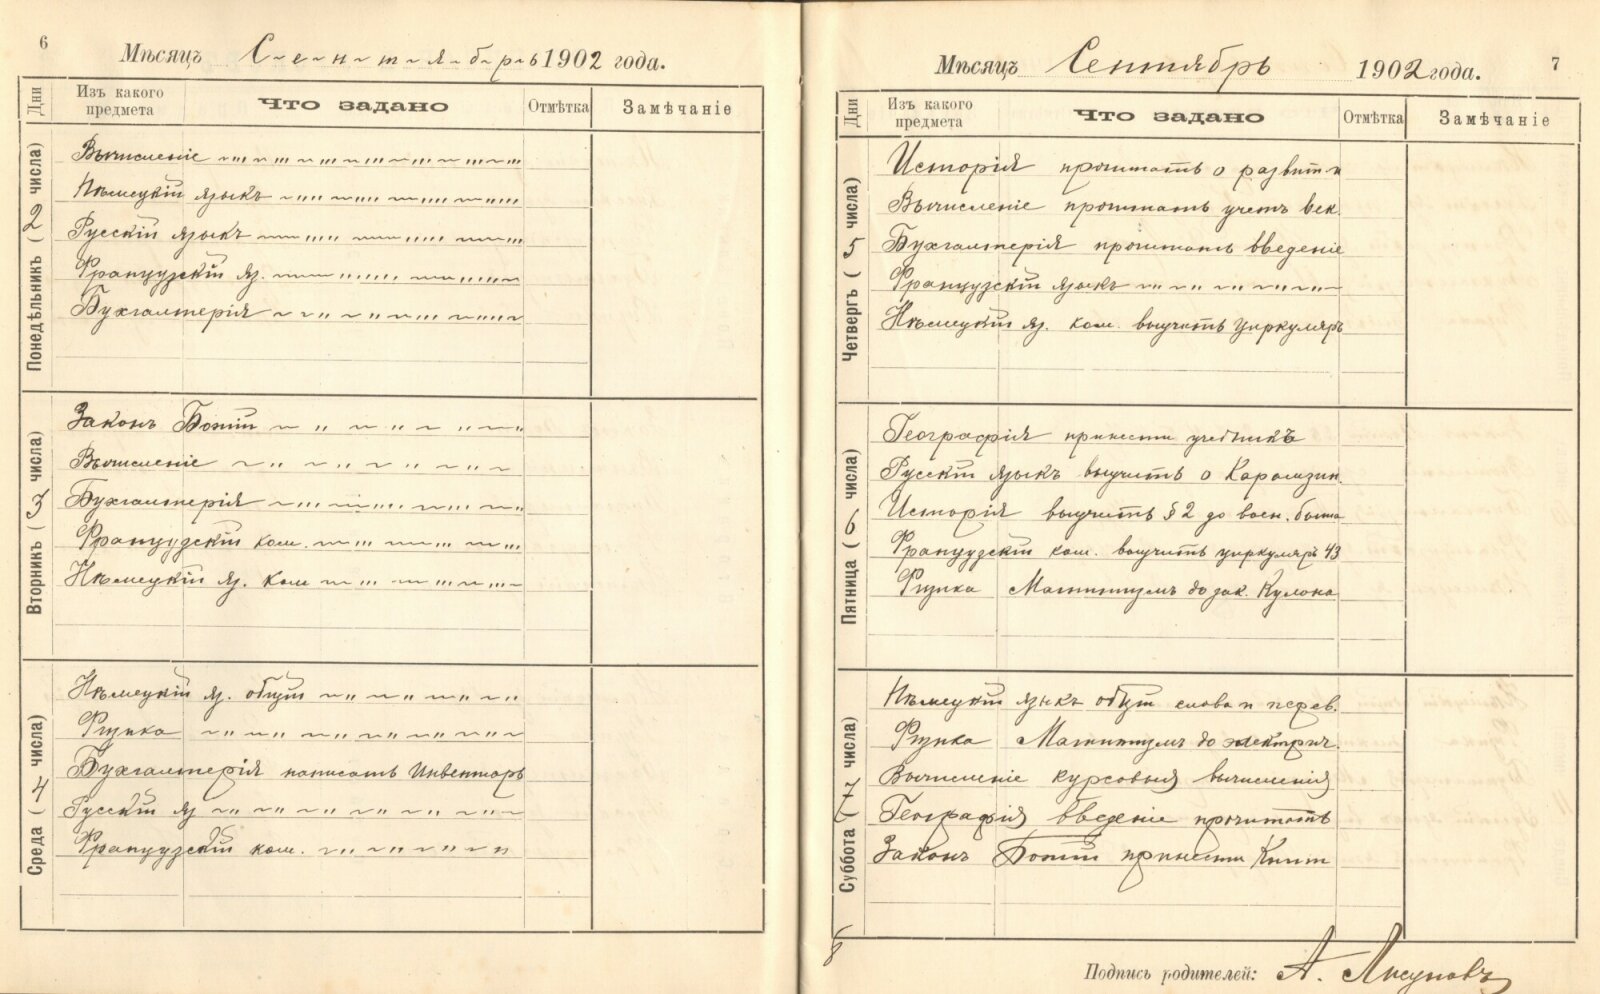 6
Мѣсяцъ Сентябрь 1902 года.
Дни
Изъ какого предмета
Что задано
Отмѣтка
Замѣчаніе
Понедѣльникъ (2 числа)
Вычисленіе
Нѣмецкій языкъ
Русскій языкъ
Французскій яз.
Бухгалтерія
Вторникъ (3 числа)
Законъ Божій
Вычисленіе
Бухгалтерія
Французскій ком.
Нѣмецкій яз. ком
Среда (4 числа)
Нѣмецкій яз. общій
Физика
Бухгалтерія написать Инвентарь
Русскій яз
Французскій ком.
7
Мѣсяцъ Сентябрь 1902 года.
Дни
Изъ какого предмета
Что задано
Отмѣтка
Замѣчаніе
Четвергъ (5 числа)
Исторія прочитать о развити
Вычисленіе прочитать учетъ век.
Бухгалтерія прочитать введеніе
Французскій языкъ
Нѣмецкій яз. ком. выучить циркуляръ
Пятница (6 числа)
Географія принести учебникъ
Русскій языкъ выучить о Карамзин.
Исторія выучить § 2 до воен.
Французскій ком. выучить циркуляръ 43
Физика Магнитизмъ до зак. Кулона
Суббота (7 числа)
Нѣмецкій языкъ общій слова и перев.
Физика Магнитизмъ до электрич.
Вычисленіе курсовыя вычисленія
Географія введеніе прочитать
Законъ Божій принести Книги
8
Подпись родителей: А. Лисуновъ